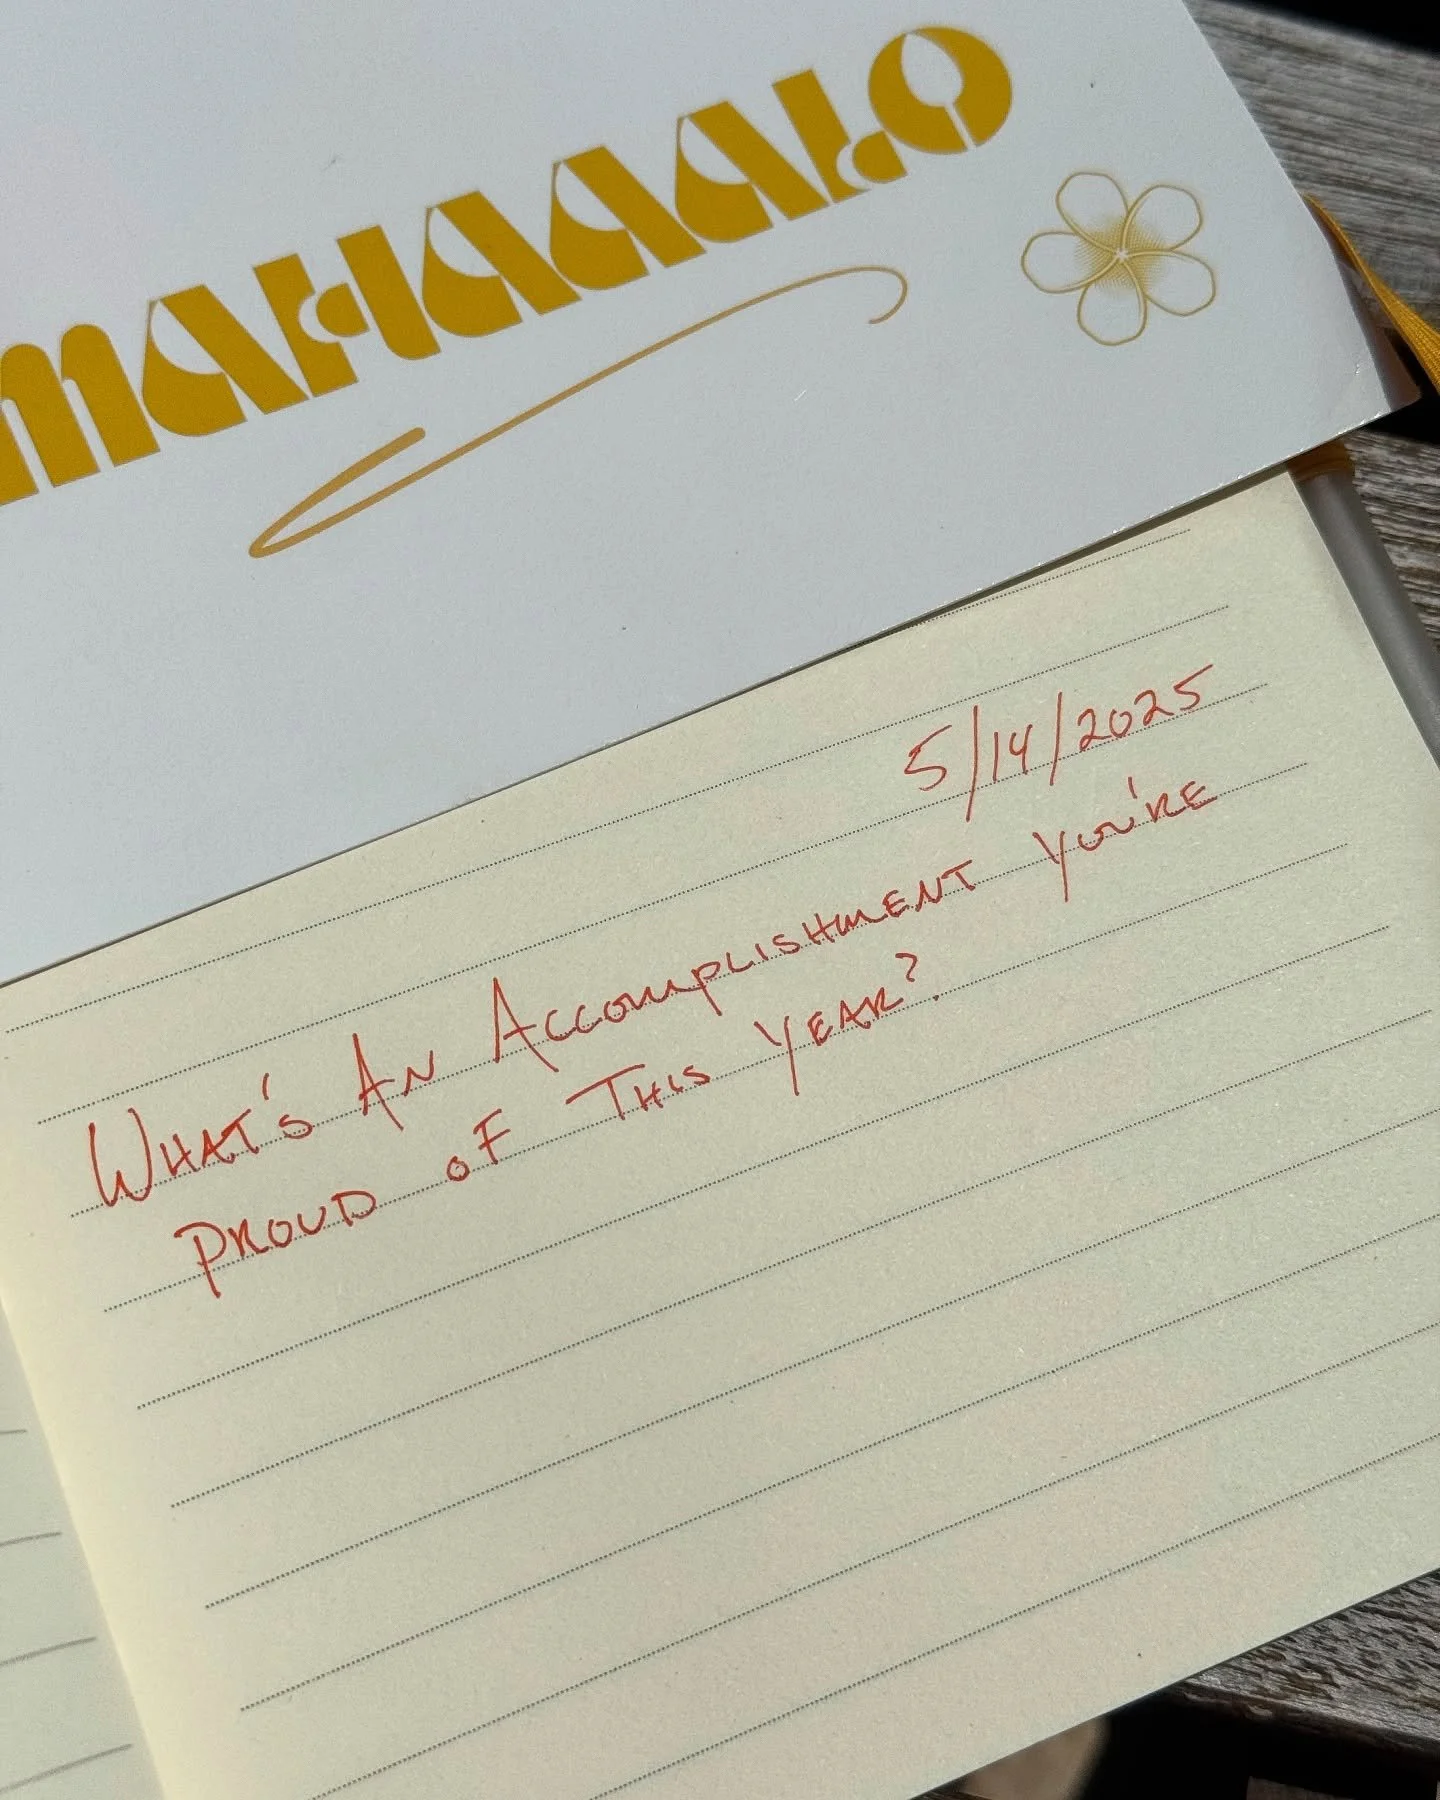 MAHAAALO
5/14/2025
WHAT'S AN ACCOMPLISHMENT YOU'RE
PROUD OF THIS YEAR?